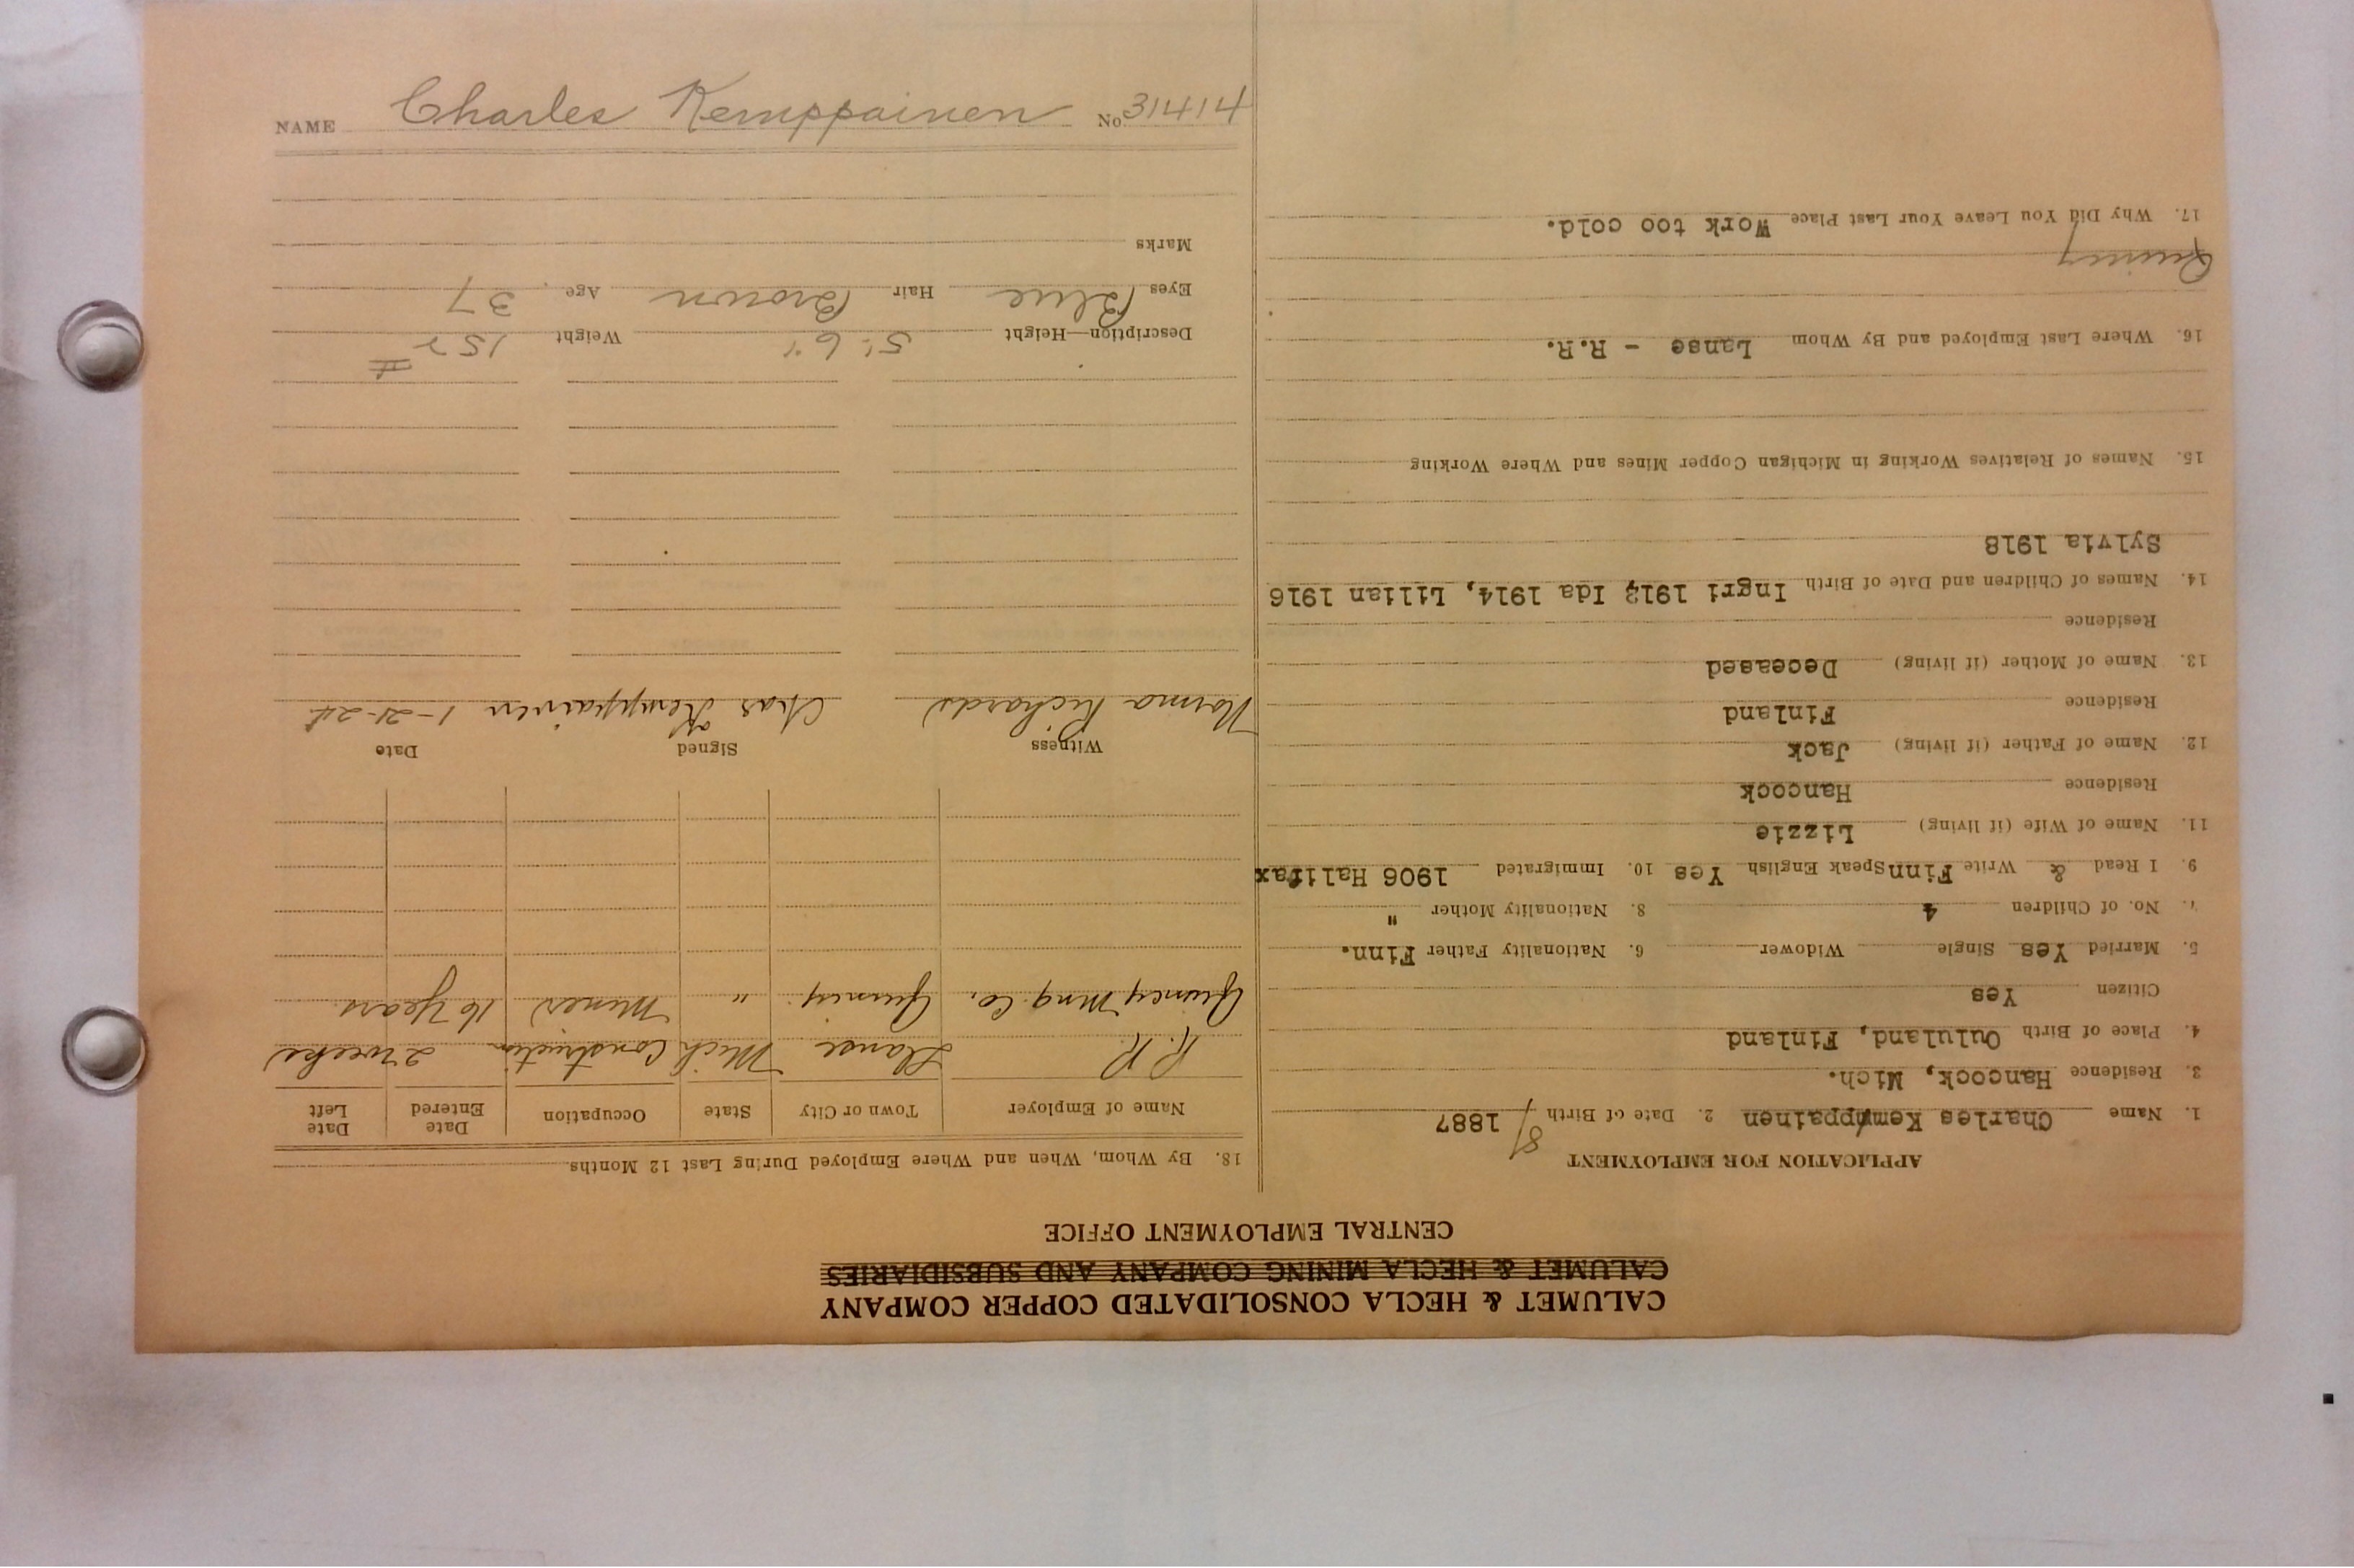 CALUMET & HECLA CONSOLIDATED COPPER COMPANY
CALUMET & HECLA MINING COMPANY AND SUBSIDIARIES
CENTRAL EMPLOYMENT OFFICE
APPLICATION FOR EMPLOYMENT
1. Name Charles Kemppainen 2. Date of Birth 8/ 1887
3. Residence Hancock, Mich.
4. Place of Birth Oululand, Finland
Citizen Yes
5. Married Yes Single Widower 6. Nationality Father Finn.
7. No. of Children 4 8. Nationality Mother "
9. I Read & Write Finn Speak English Yes 10. Immigrated 1906 Halifax
11. Name of Wife (if living) Lizzie
Residence Hancock
12. Name of Father (if living) Jack
Residence Finland
13. Name of Mother (if living) Deceased
Residence
14. Names of Children and Date of Birth Ingri 1912 Ida 1914, Lilian 1916
Sylvia 1918
15. Names of Relatives Working in Michigan Copper Mines and Where Working
16. Where Last Employed and By Whom Lanse - R.R.
Quincy
17. Why Did You Leave Your Last Place Work too cold.
18. By Whom, When and Where Employed During Last 12 Months
Name of Employer Town or City State Occupation Date Entered Date Left
R. R. Llanse Mich Construction 2 weeks
Quincy Mng. Co. Quincy " Miner 16 years
Witness Signed Date
Norma Richards Chas Kemppainen 1-21-24
Description—Height 5' 6" Weight 152
Eyes Blue Hair Brown Age 37
Marks
NAME Charles Kemppainen No 31414